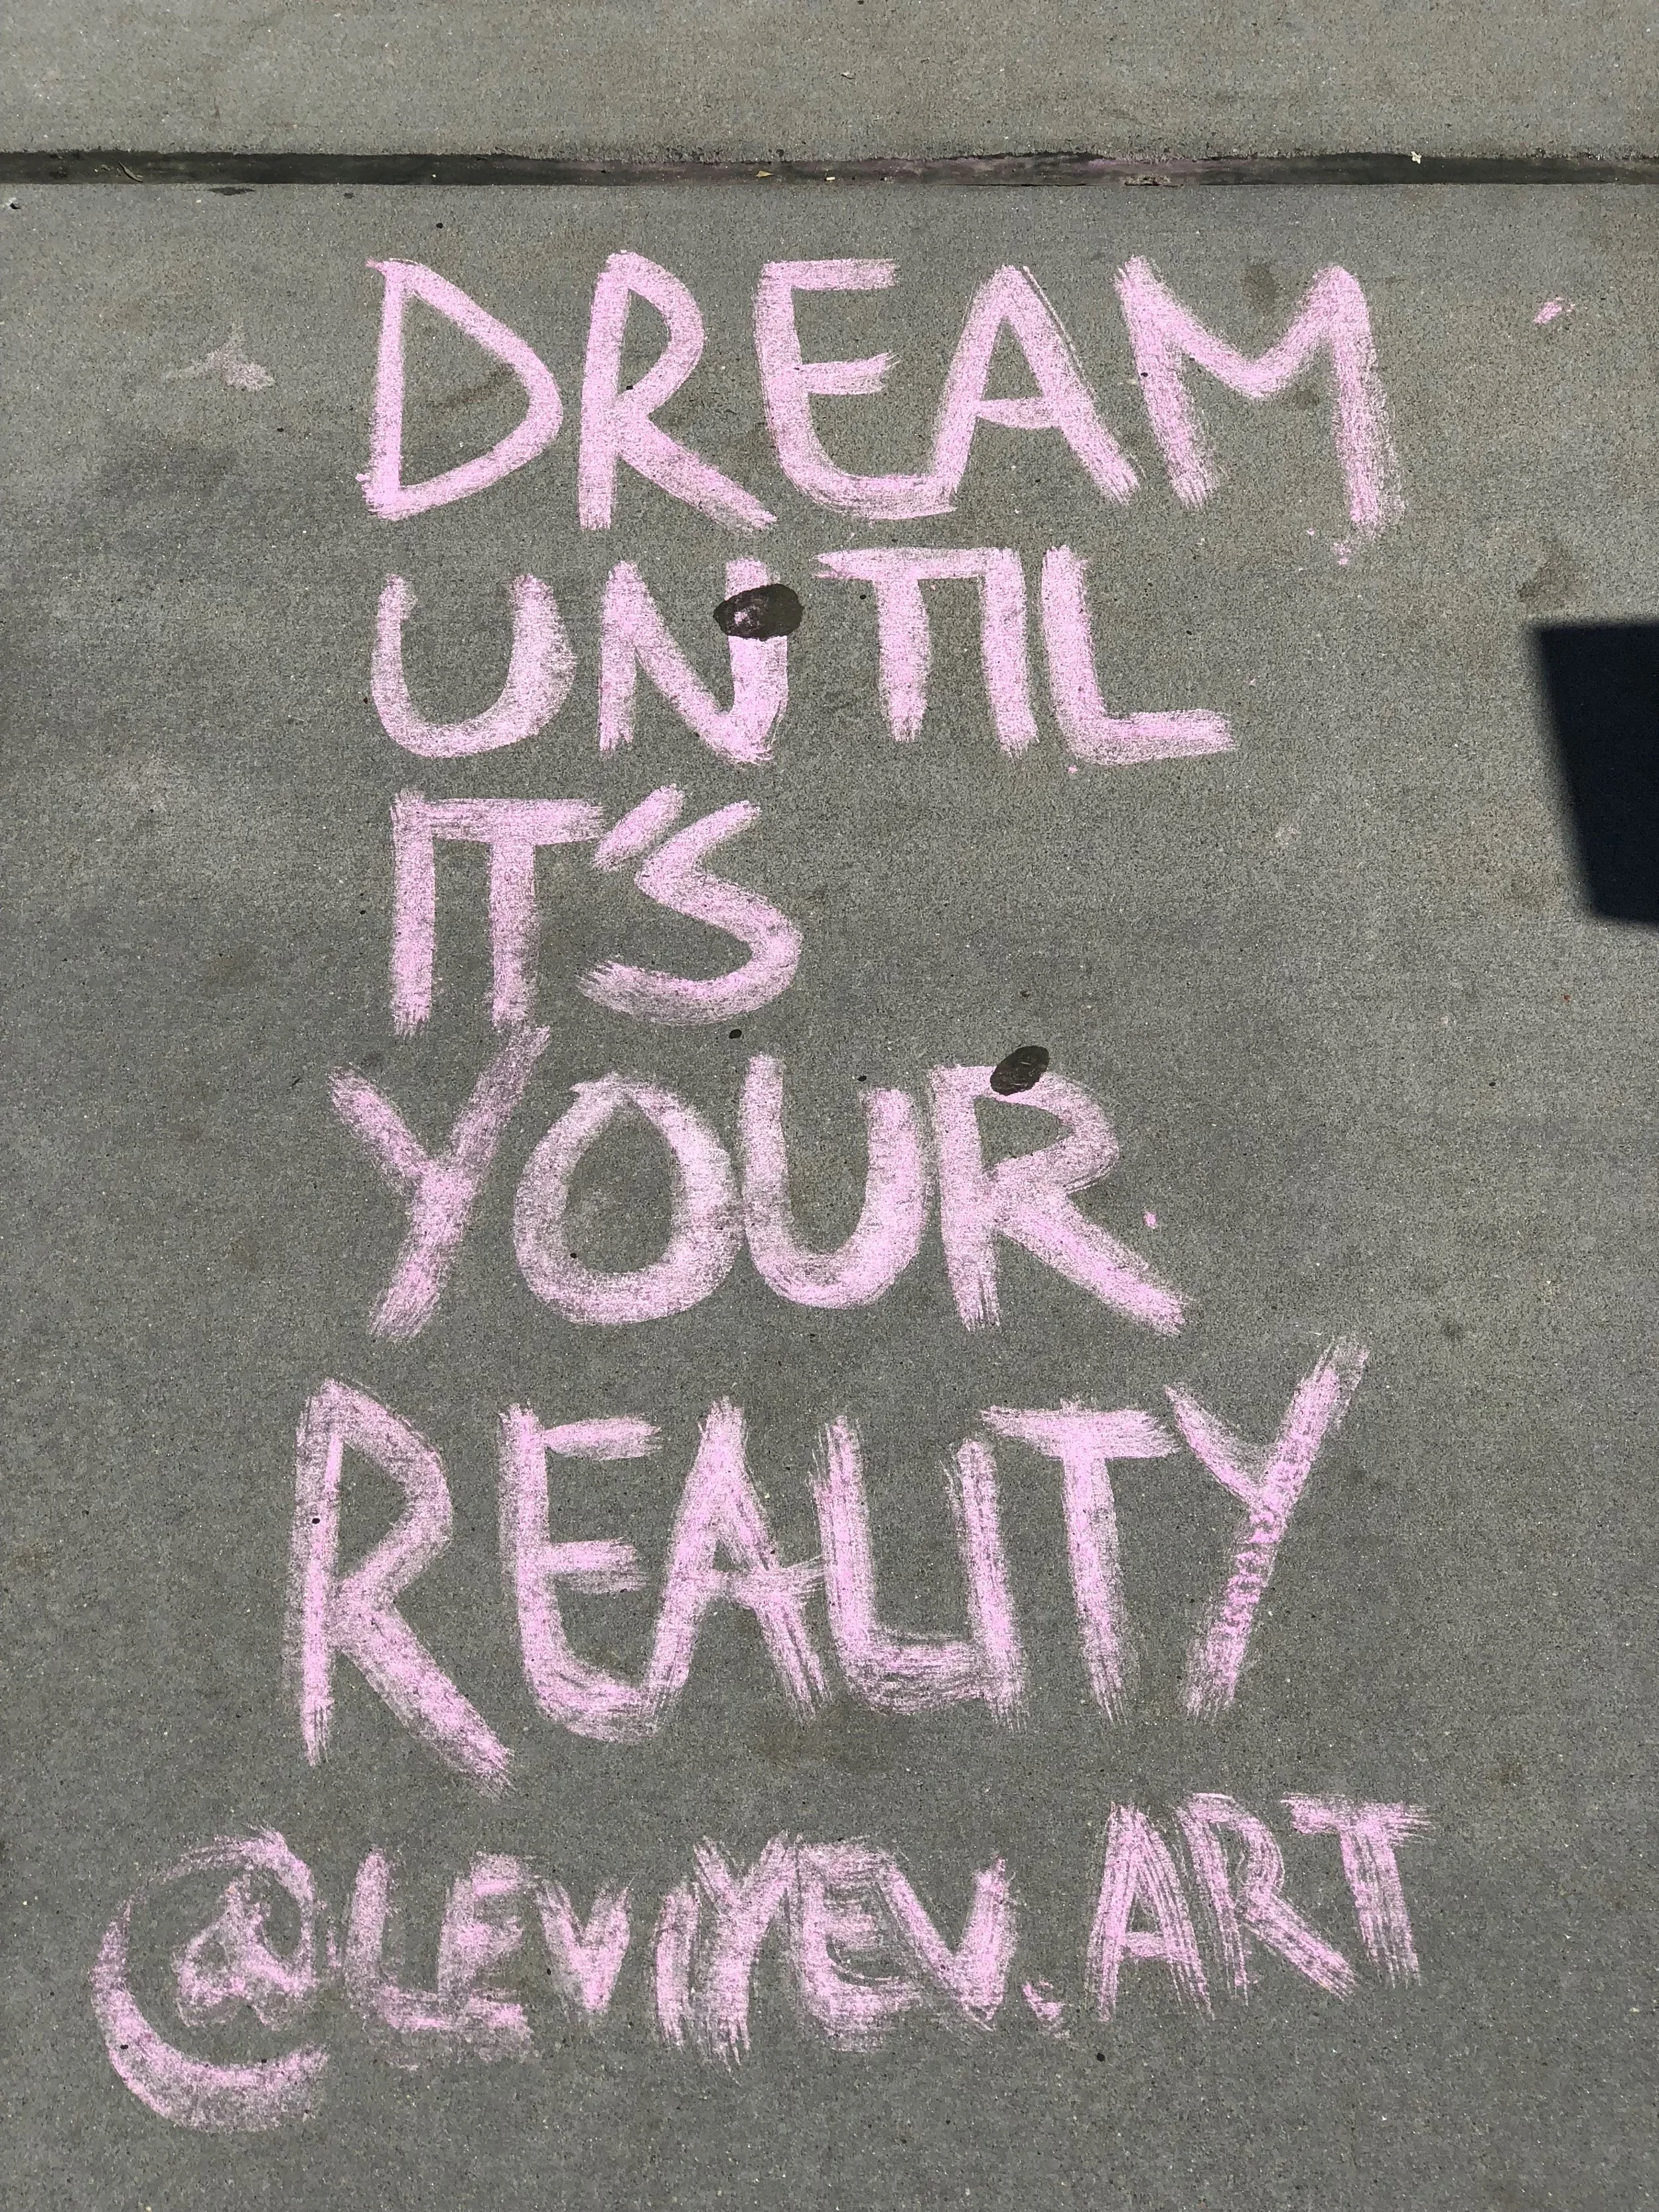 DREAM
UNTIL
IT'S
YOUR
REALITY
@LEVIYEV.ART